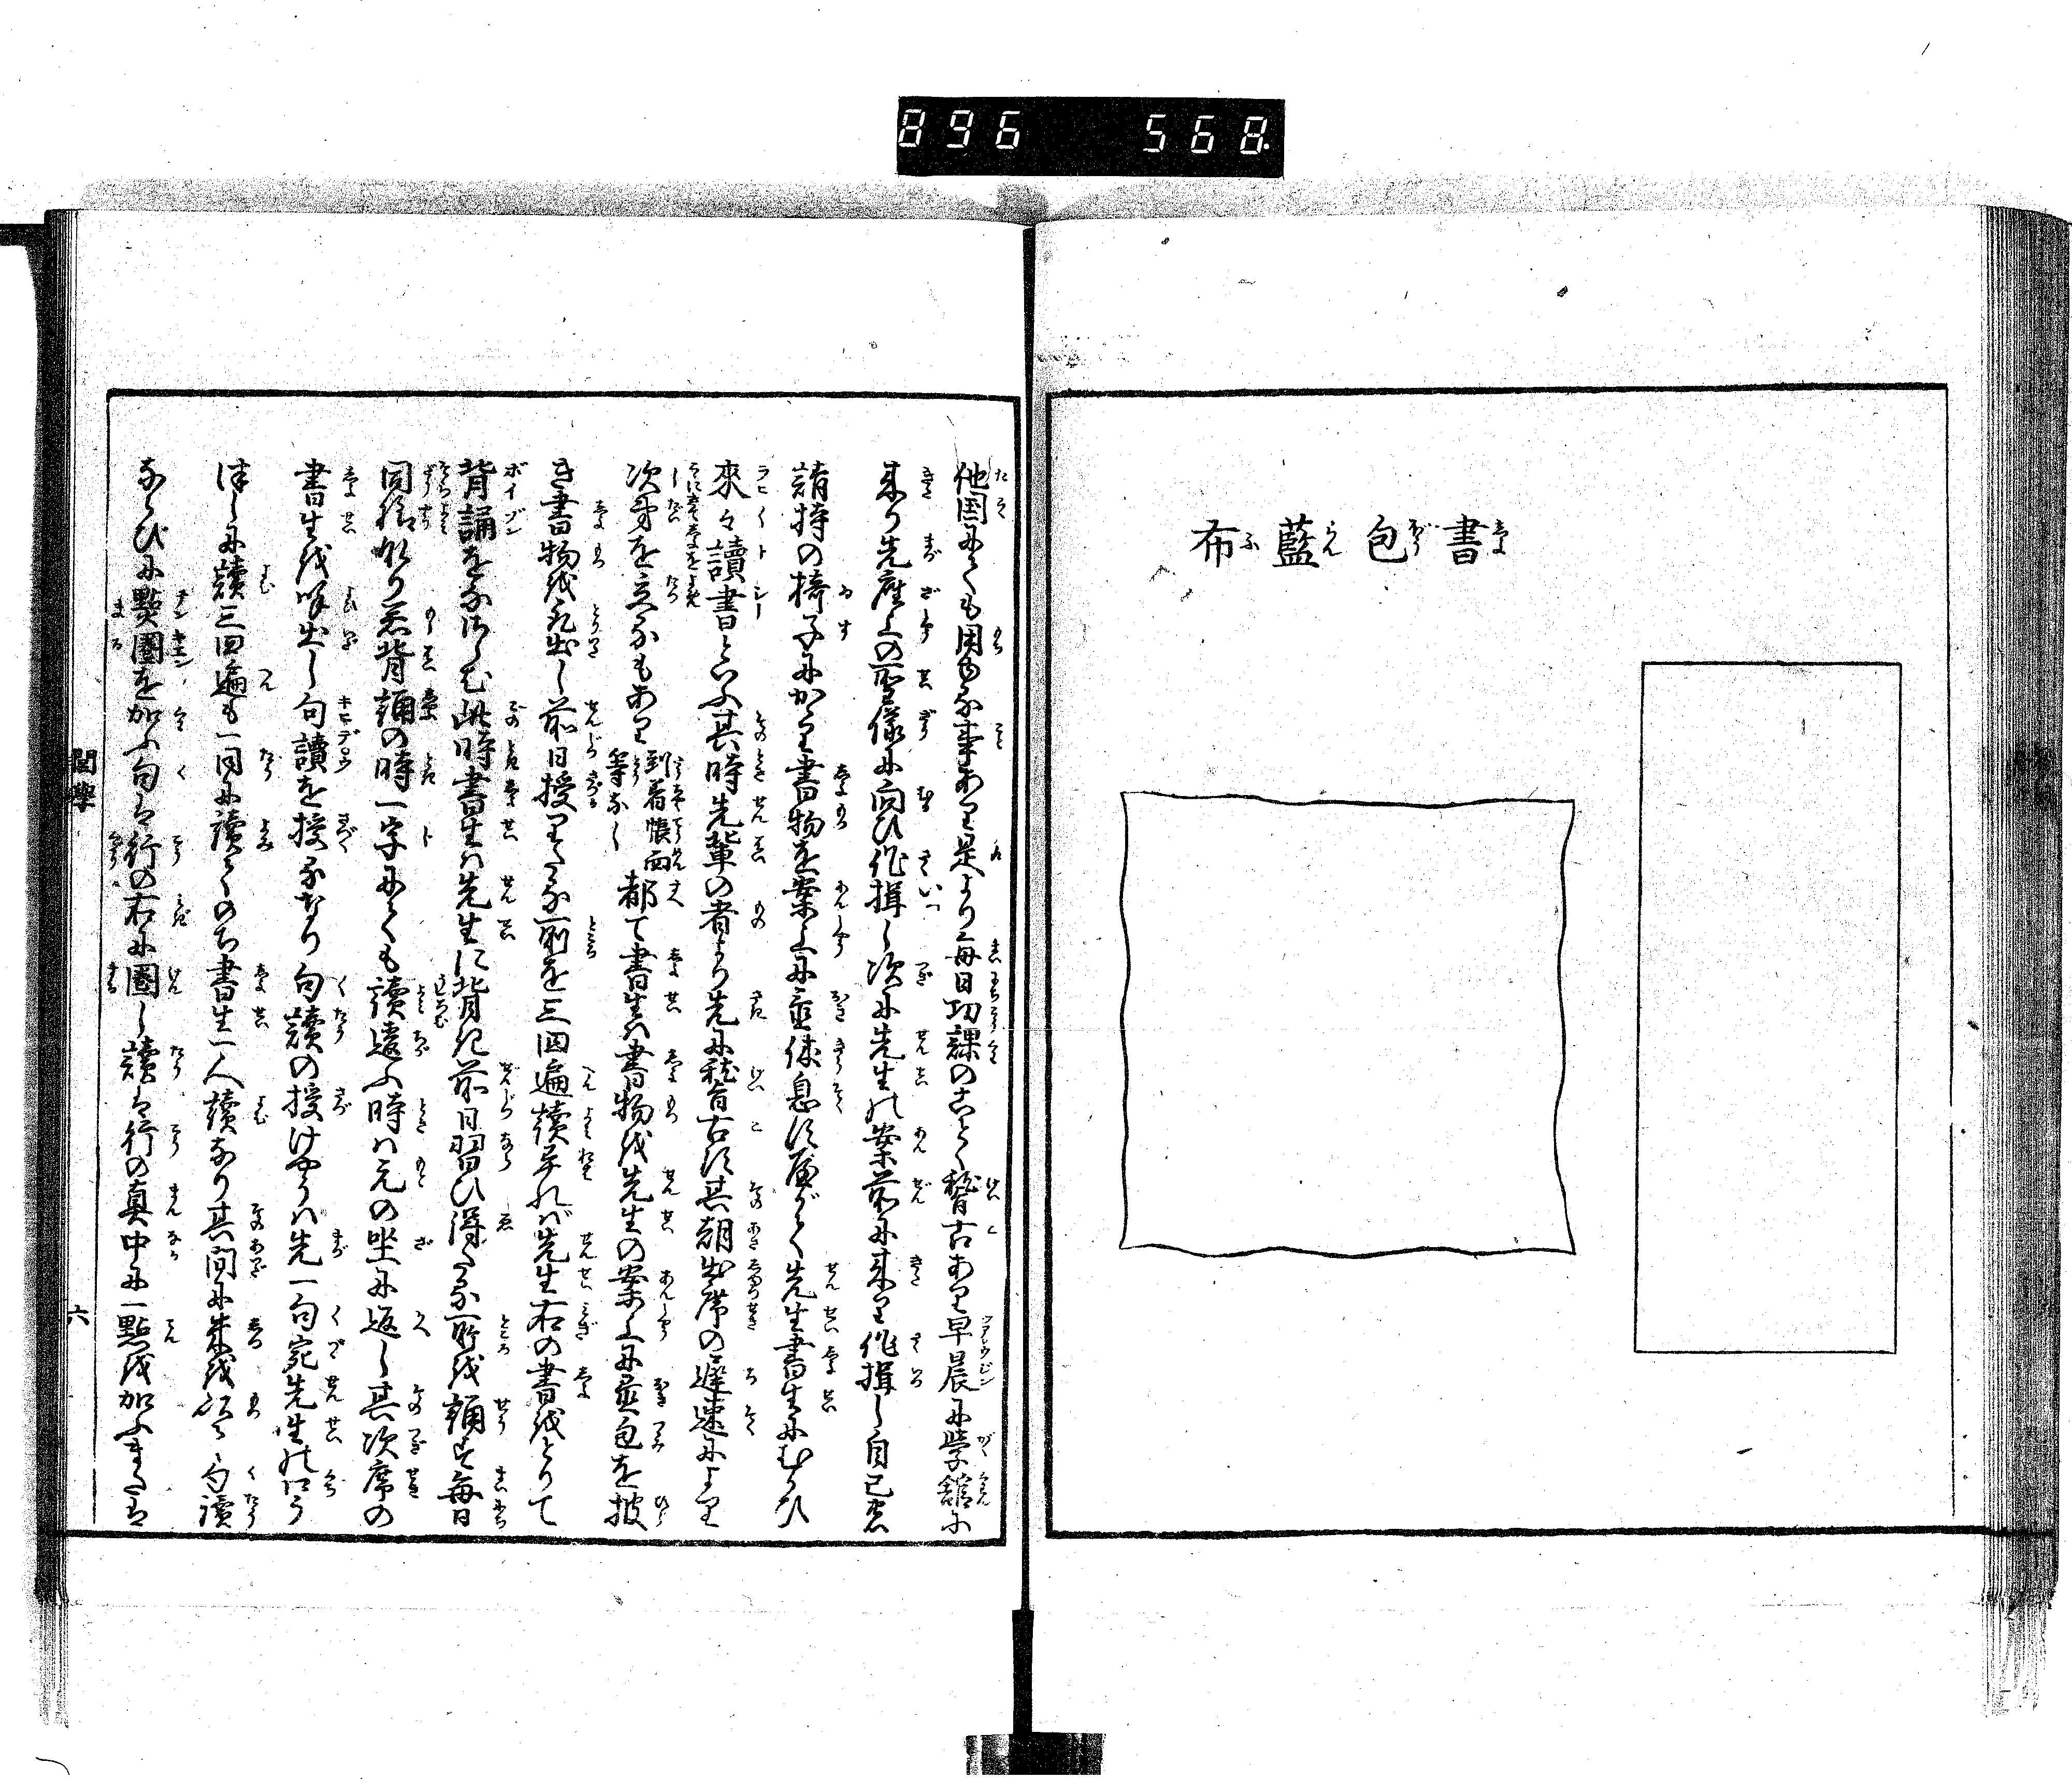 896 568
書包藍布
他国にても用ゆる事あり是より毎日功課のごとく稽古あり早晨に学館に
来り先座上の聖像に向ひ作揖し次に先生の案前に来り作揖し自己登
請持の椅子にかゝり書物を案上に置休息す落がて先生書生にむかひ
來々讀書といふ其時先輩の者より先に稽古す其朝出席の遅速により
次第を立るもあり
到着帳面
等なし
都て書生ハ書物を先生の案上に置包を披
き書物を取出し前日授りたる所を三四遍讀み先生右の書をとりて
背誦をなさしむ此時書生ハ先生に背き前日習ひ得たる所を誦す毎日
同様なり若背誦の時一字にても讀違ふ時ハ元の坐に返し其次席の
書生を呼出し句讀を授るなり句讀の授けやうハ先一句宛先生の口う
つしに讀三四遍も一同に讀てのち書生一人讀なり其間に朱を以て句讀
ならびに點圏を加ふ句は行の右に圏し讀は行の真中に一點を加ふまたは
閩學
六